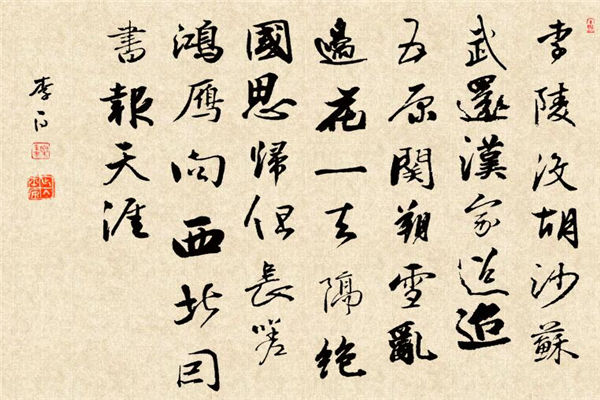 李陵没胡沙蘇
武還漢家迢迢
五原關朔雪亂
邊花一去隔絕
國思歸但長嗟
鴻鴈向西北囙
書報天涯
李白